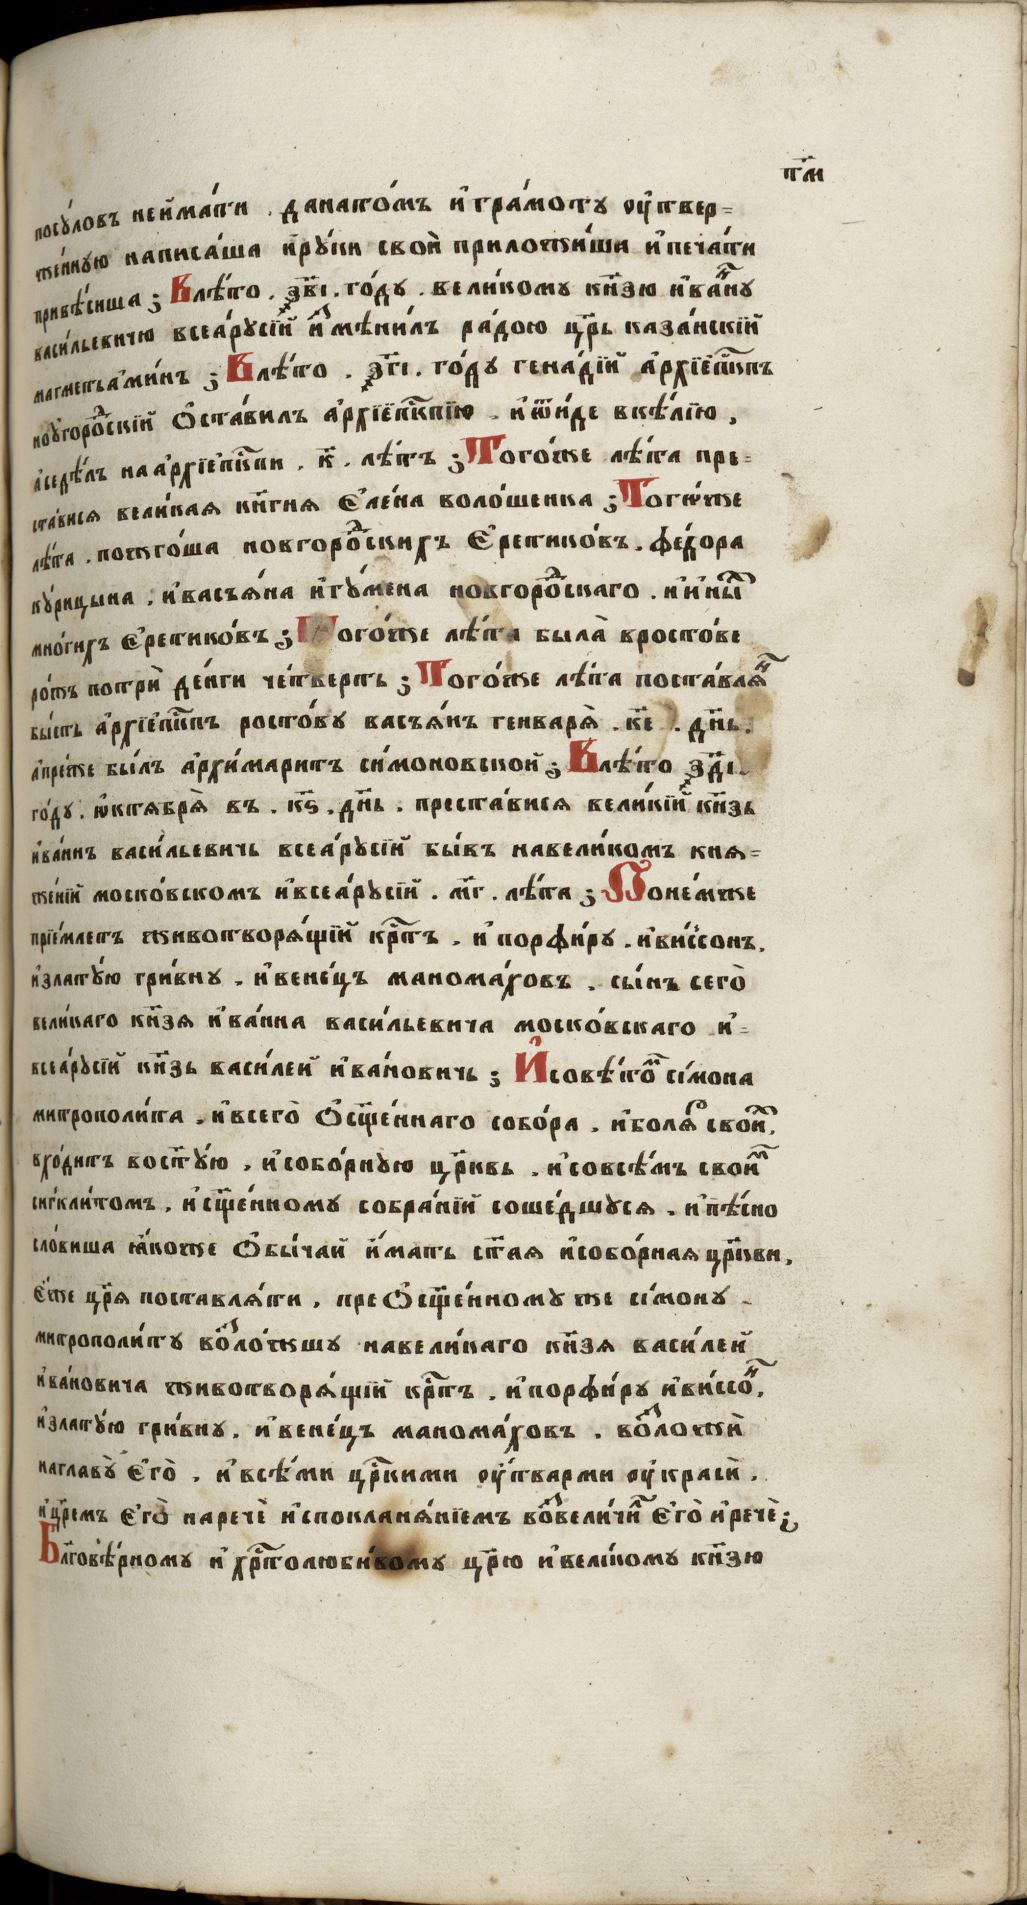 тм҃
посу́ловъ неи҆ма́ти . данато́мъ и҆гра́моту ѹ҆твер=
же́нную написа́ша и҆ру́ки своѝ приложи́ша и҆печа́ти
привѣ́сиша ; Влѣ́то . ҂з҃ві . го́ду . вели́кому кн҃зю и҆ва́нну
васи́льевичю всеа́русїй и҆змѣни́лъ ра́дою цр҃ь каза́нскїй
магметъами́нъ ; Влѣ́то . ҂з҃гі . го́ду гена́дїй а҆рхїеп҃пъ
ноугоро́дскїй Ѻ҆ста́вилъ а҆рхїеп҃кпїю . и҆ѿи́де вкѣ́лїю ,
а҆седѣ́лъ наа҆рхїеп҃кпи . к҃ . лѣ́тъ ; Того́же лѣ́та пре=
ста́вися вели́кая кн҃гня Є҆ле́на воло́шенка ; Того́же
лѣ́та . пожго́ша новгоро́дскихъ Є҆ретико́въ . фе́дора
ку́рицына . и҆васъя́на и҆гу́мена новгоро́дскаго . и҆и҆ны́х
мно́гихъ є҆ретико́въ ; Того́же лѣ́та была̀ вросто́ве
ро́жъ потрѝ де́нги че́тверть ; Того́же лѣ́та поста́влѧн
бы́сть а҆рхїеп҃кпъ росто́ву васъя́нъ генваря̀ . к҃е . дн҃ь .
а҆пре́же бы́лъ а҆рхи́маритъ си́моновской ; Влѣ́то ҂з҃ді .
го́ду . ѡ҆ктября̀ въ . к҃ѕ . дн҃ь . преста́вися вели́кїй кн҃зь
и҆ва́ннъ васи́льевичь всеа́русїй бы́въ навели́комъ кня=
же́нїй моско́вскомъ и҆всеа́русїй . м҃г . лѣ́та ; Поне́мже
прїе́млетъ животворя́щїй кр҃тъ . и҆порфи́ру . и҆ви́ссонъ .
и҆злату́ю гри́вну . и҆вене́цъ манома́ховъ . сы́нъ сего̀
вели́каго кн҃зя и҆ва́нна васи́льевича моско́вскаго и҆=
всеа́русїй кн҃зь васи́лей и҆ва́новичь ; И҆совѣ́том си́мона
митрополи́та . и҆всего̀ Ѻ҆сщ҃е́ннаго собо́ра . и҆боля́р свои́х .
вхо́дитъ вост҃у́ю . и҆собо́рную цр҃ковь . и҆совсѣ́мъ свои́м
сигкли́томъ . и҆сщ҃е́нному собра́нїй соше́дшуся . и҆пѣ́сно
сло́виша ꙗ҆́коже Ѻ҆бы́чай и҆́мать ст҃ая и҆собо́рная цр҃кви ,
є҆́же цр҃я поставля́ти . преѺ҆сщ҃е́нномуже си́мону .
митрополи́ту возло́жшу навели́каго кн҃зя васи́лей
и҆ва́новича животворя́щїй кр҃тъ . и҆порфи́ру и҆ви́ссон .
и҆злату́ю гри́вну . и҆вене́цъ манома́ховъ . возложѝ
наглаву̀ є҆го̀ . и҆всѣ́ми цр҃кими ѹ҆́тварми ѹ҆красѝ .
и҆цр҃емъ є҆го̀ наречѐ и҆спокланя́нїемъ возвели́чил є҆го̀ и҆речѐ ;
Бл҃говѣ́рному и҆хр҃столюби́вому цр҃ю и҆вели́кому кн҃зю